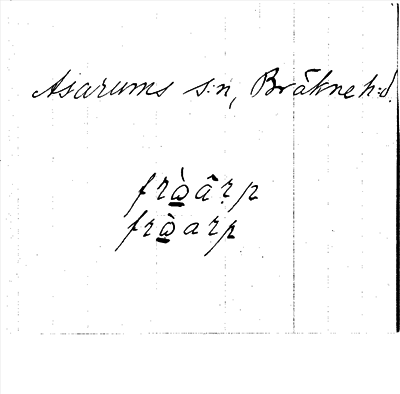 Asarums s:n, Bräkne h:d.
frὼ̲ârp
frὼ̲arp